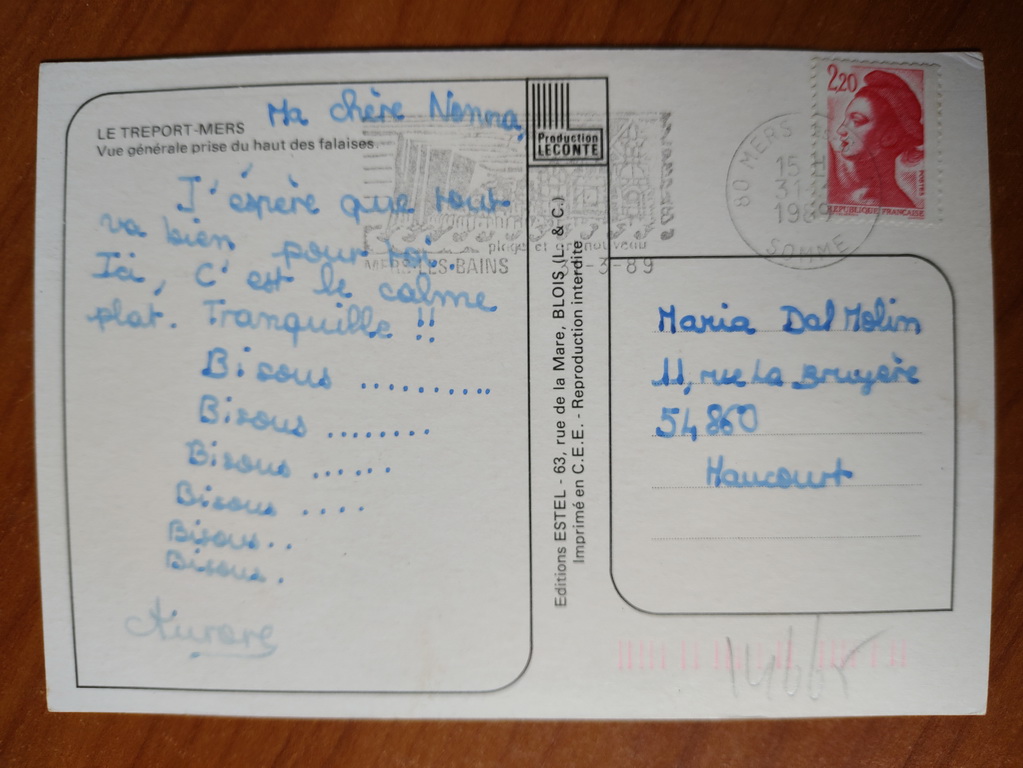 LE TREPORT-MERS
Vue générale prise du haut des falaises
Ma chère Nonna,
J'éspère que tout
va bien pour toi.
Ici, C'est le calme
plat. Tranquille !!
Bisous ..........
Bisous ........
Bisous ......
Bisous ....
Bisous..
Bisous.
Aurore
Production
LECONTE
plage et
MERS-LES-BAINS 31-3-89
Editions ESTEL - 63, rue de la Mare, BLOIS (L. & C.)
Imprimé en C.E.E. - Reproduction interdite
80 MERS
15 H
31
1989
SOMME
2,20
POSTES
REPUBLIQUE FRANÇAISE
Maria Dal Molin
11, rue La Bruyère
54860
Haucourt